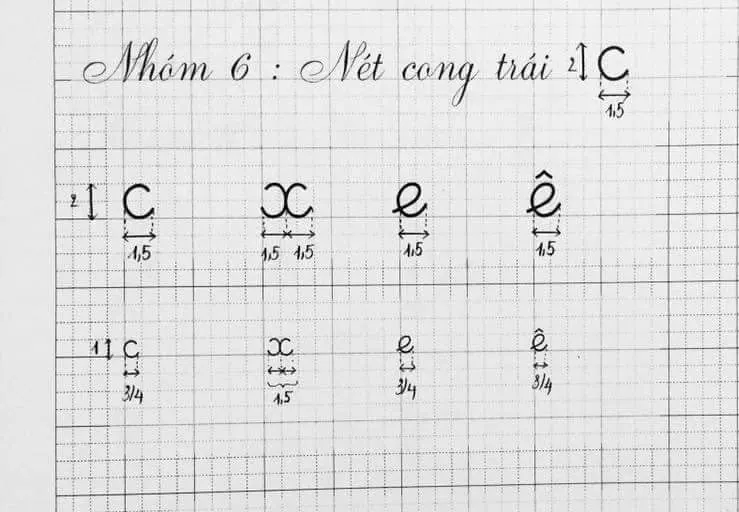 Nhóm 6 : Nét cong trái 2 c
1,5
2 c x e ê
1,5 1,5 1,5 1,5 1,5
1 c x e ê
3/4 1,5 3/4 3/4